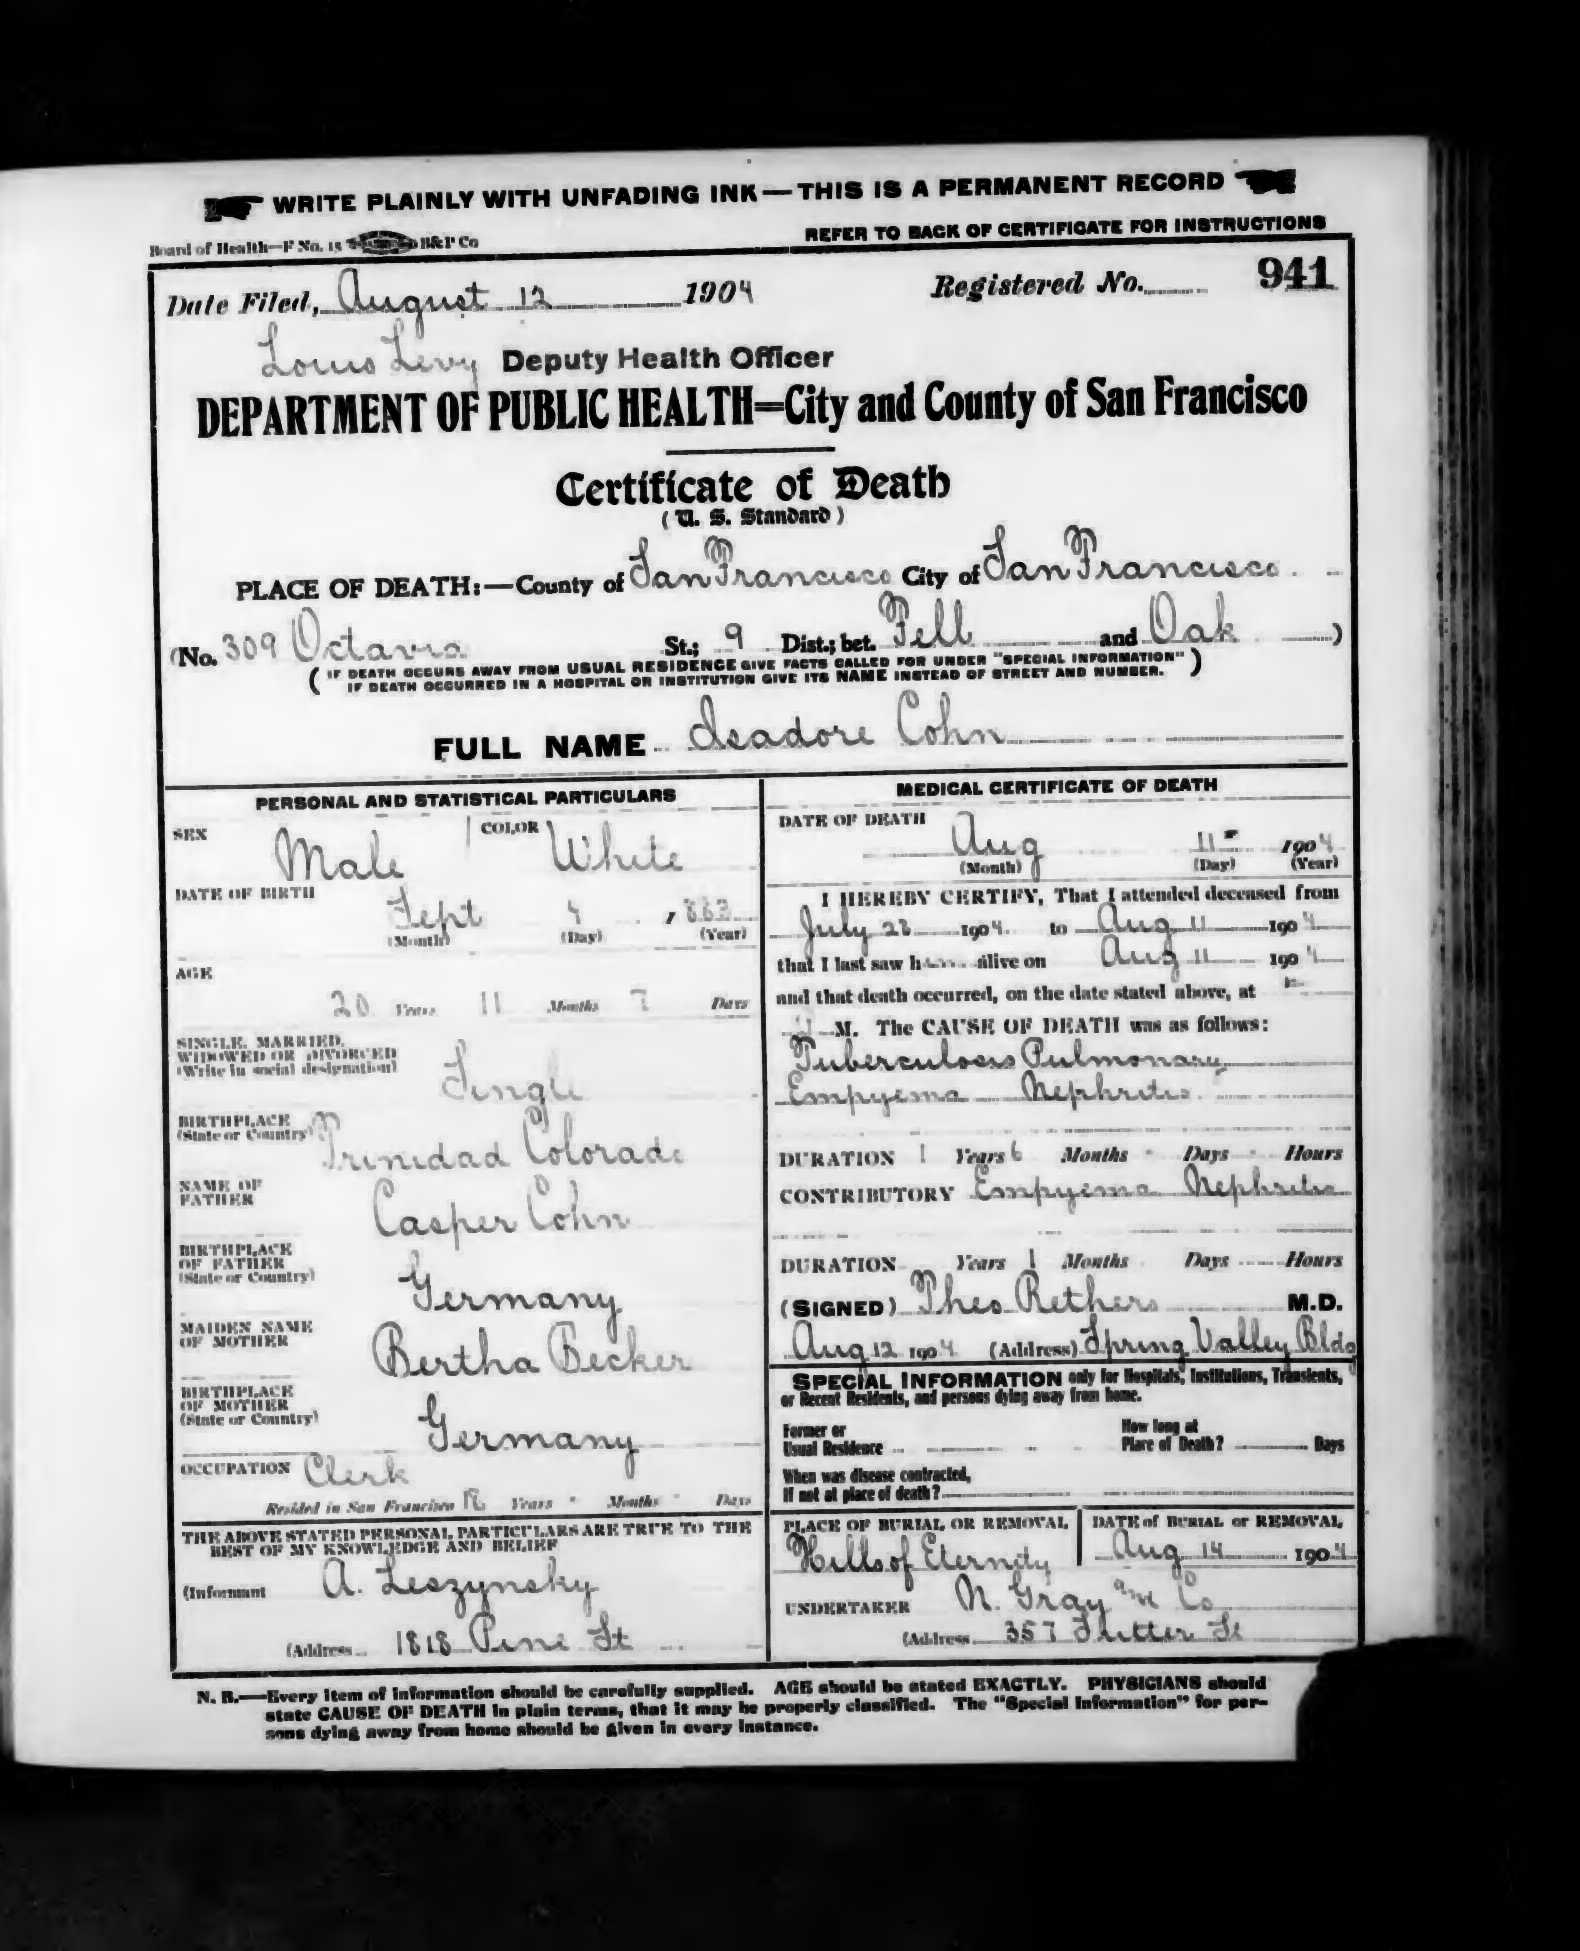 WRITE PLAINLY WITH UNFADING INK—THIS IS A PERMANENT RECORD
Board of Health—F No. 15 B&P Co
REFER TO BACK OF CERTIFICATE FOR INSTRUCTIONS
Date Filed, August 12 1904 Registered No. 941
Louis Levy Deputy Health Officer
DEPARTMENT OF PUBLIC HEALTH=City and County of San Francisco
Certificate of Death
( U. S. Standard )
PLACE OF DEATH:—County of San Francisco City of San Francisco.
(No. 309 Octavia St.; 9 Dist.; bet. Fell and Oak )
( IF DEATH OCCURS AWAY FROM USUAL RESIDENCE GIVE FACTS CALLED FOR UNDER "SPECIAL INFORMATION" )
IF DEATH OCCURRED IN A HOSPITAL OR INSTITUTION GIVE ITS NAME INSTEAD OF STREET AND NUMBER.
FULL NAME Isadore Cohn
PERSONAL AND STATISTICAL PARTICULARS
SEX Male COLOR White
DATE OF BIRTH
Sept 4 , 883
(Month) (Day) (Year)
AGE
20 Years 11 Months 7 Days
SINGLE, MARRIED,
WIDOWED OR DIVORCED
(Write in social designation) Single
BIRTHPLACE
(State or Country) Trinidad Colorado
NAME OF
FATHER Casper Cohn
BIRTHPLACE
OF FATHER
(State or Country) Germany
MAIDEN NAME
OF MOTHER Bertha Becker
BIRTHPLACE
OF MOTHER
(State or Country) Germany
OCCUPATION Clerk
Resided in San Francisco 18 Years - Months - Days
THE ABOVE STATED PERSONAL PARTICULARS ARE TRUE TO THE
BEST OF MY KNOWLEDGE AND BELIEF
(Informant A. Leszynsky
(Address 1818 Pine St
MEDICAL CERTIFICATE OF DEATH
DATE OF DEATH
Aug 11 1904
(Month) (Day) (Year)
I HEREBY CERTIFY, That I attended deceased from
July 28 1904 to Aug 11 1904
that I last saw h alive on Aug 11 1904
and that death occurred, on the date stated above, at
M. The CAUSE OF DEATH was as follows:
Tuberculosis Pulmonary
Empyema Nephritis
DURATION 1 Years 6 Months - Days - Hours
CONTRIBUTORY Empyema Nephritis
DURATION Years 1 Months Days Hours
(SIGNED) Theo Rethers M.D.
Aug 12 1904 (Address) Spring Valley Bldg
SPECIAL INFORMATION only for Hospitals, Institutions, Transients,
or Recent Residents, and persons dying away from home.
Former or
Usual Residence
How long at
Place of Death? Days
When was disease contracted,
If not at place of death?
PLACE OF BURIAL OR REMOVAL
Hills of Eternity
DATE of BURIAL or REMOVAL
Aug 14 1904
UNDERTAKER N. Gray and Co
(Address 357 Sutter St
N. B.—Every item of information should be carefully supplied. AGE should be stated EXACTLY. PHYSICIANS should
state CAUSE OF DEATH in plain terms, that it may be properly classified. The "Special Information" for per-
sons dying away from home should be given in every instance.